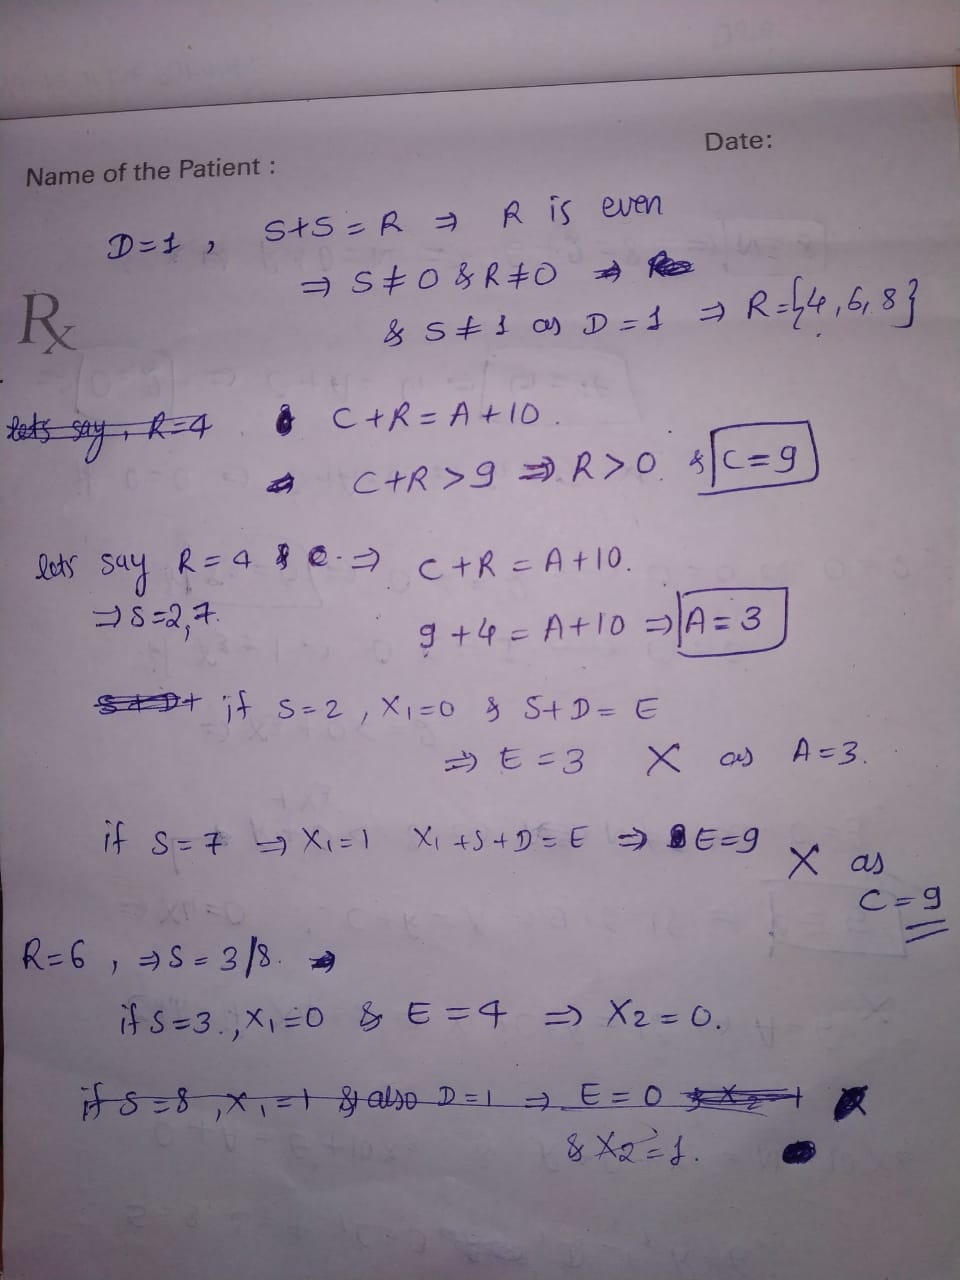 Name of the Patient :
Date:
D=1, S+S=R ⇒ R is even
⇒ S≠0 & R≠0 ⇒
& S≠1 as D=1 ⇒ R={4,6,8}
Rx
lets say, R=4 C+R=A+10.
⇒ C+R>9 ⇒ R>0. & C=9
lets say R=4 & ⇒ C+R=A+10.
⇒S=2,7. 9+4=A+10 ⇒ A=3
S+D+ if S=2, X1=0 & S+D=E
⇒ E=3 X as A=3.
if S=7 ⇒ X1=1 X1+S+D=E ⇒ E=9 X as
C=9
R=6, ⇒S=3/8. ⇒
if S=3., X1=0 & E=4 ⇒ X2=0.
if S=8, X1=1 & also D=1 ⇒ E=0
& X2=1.